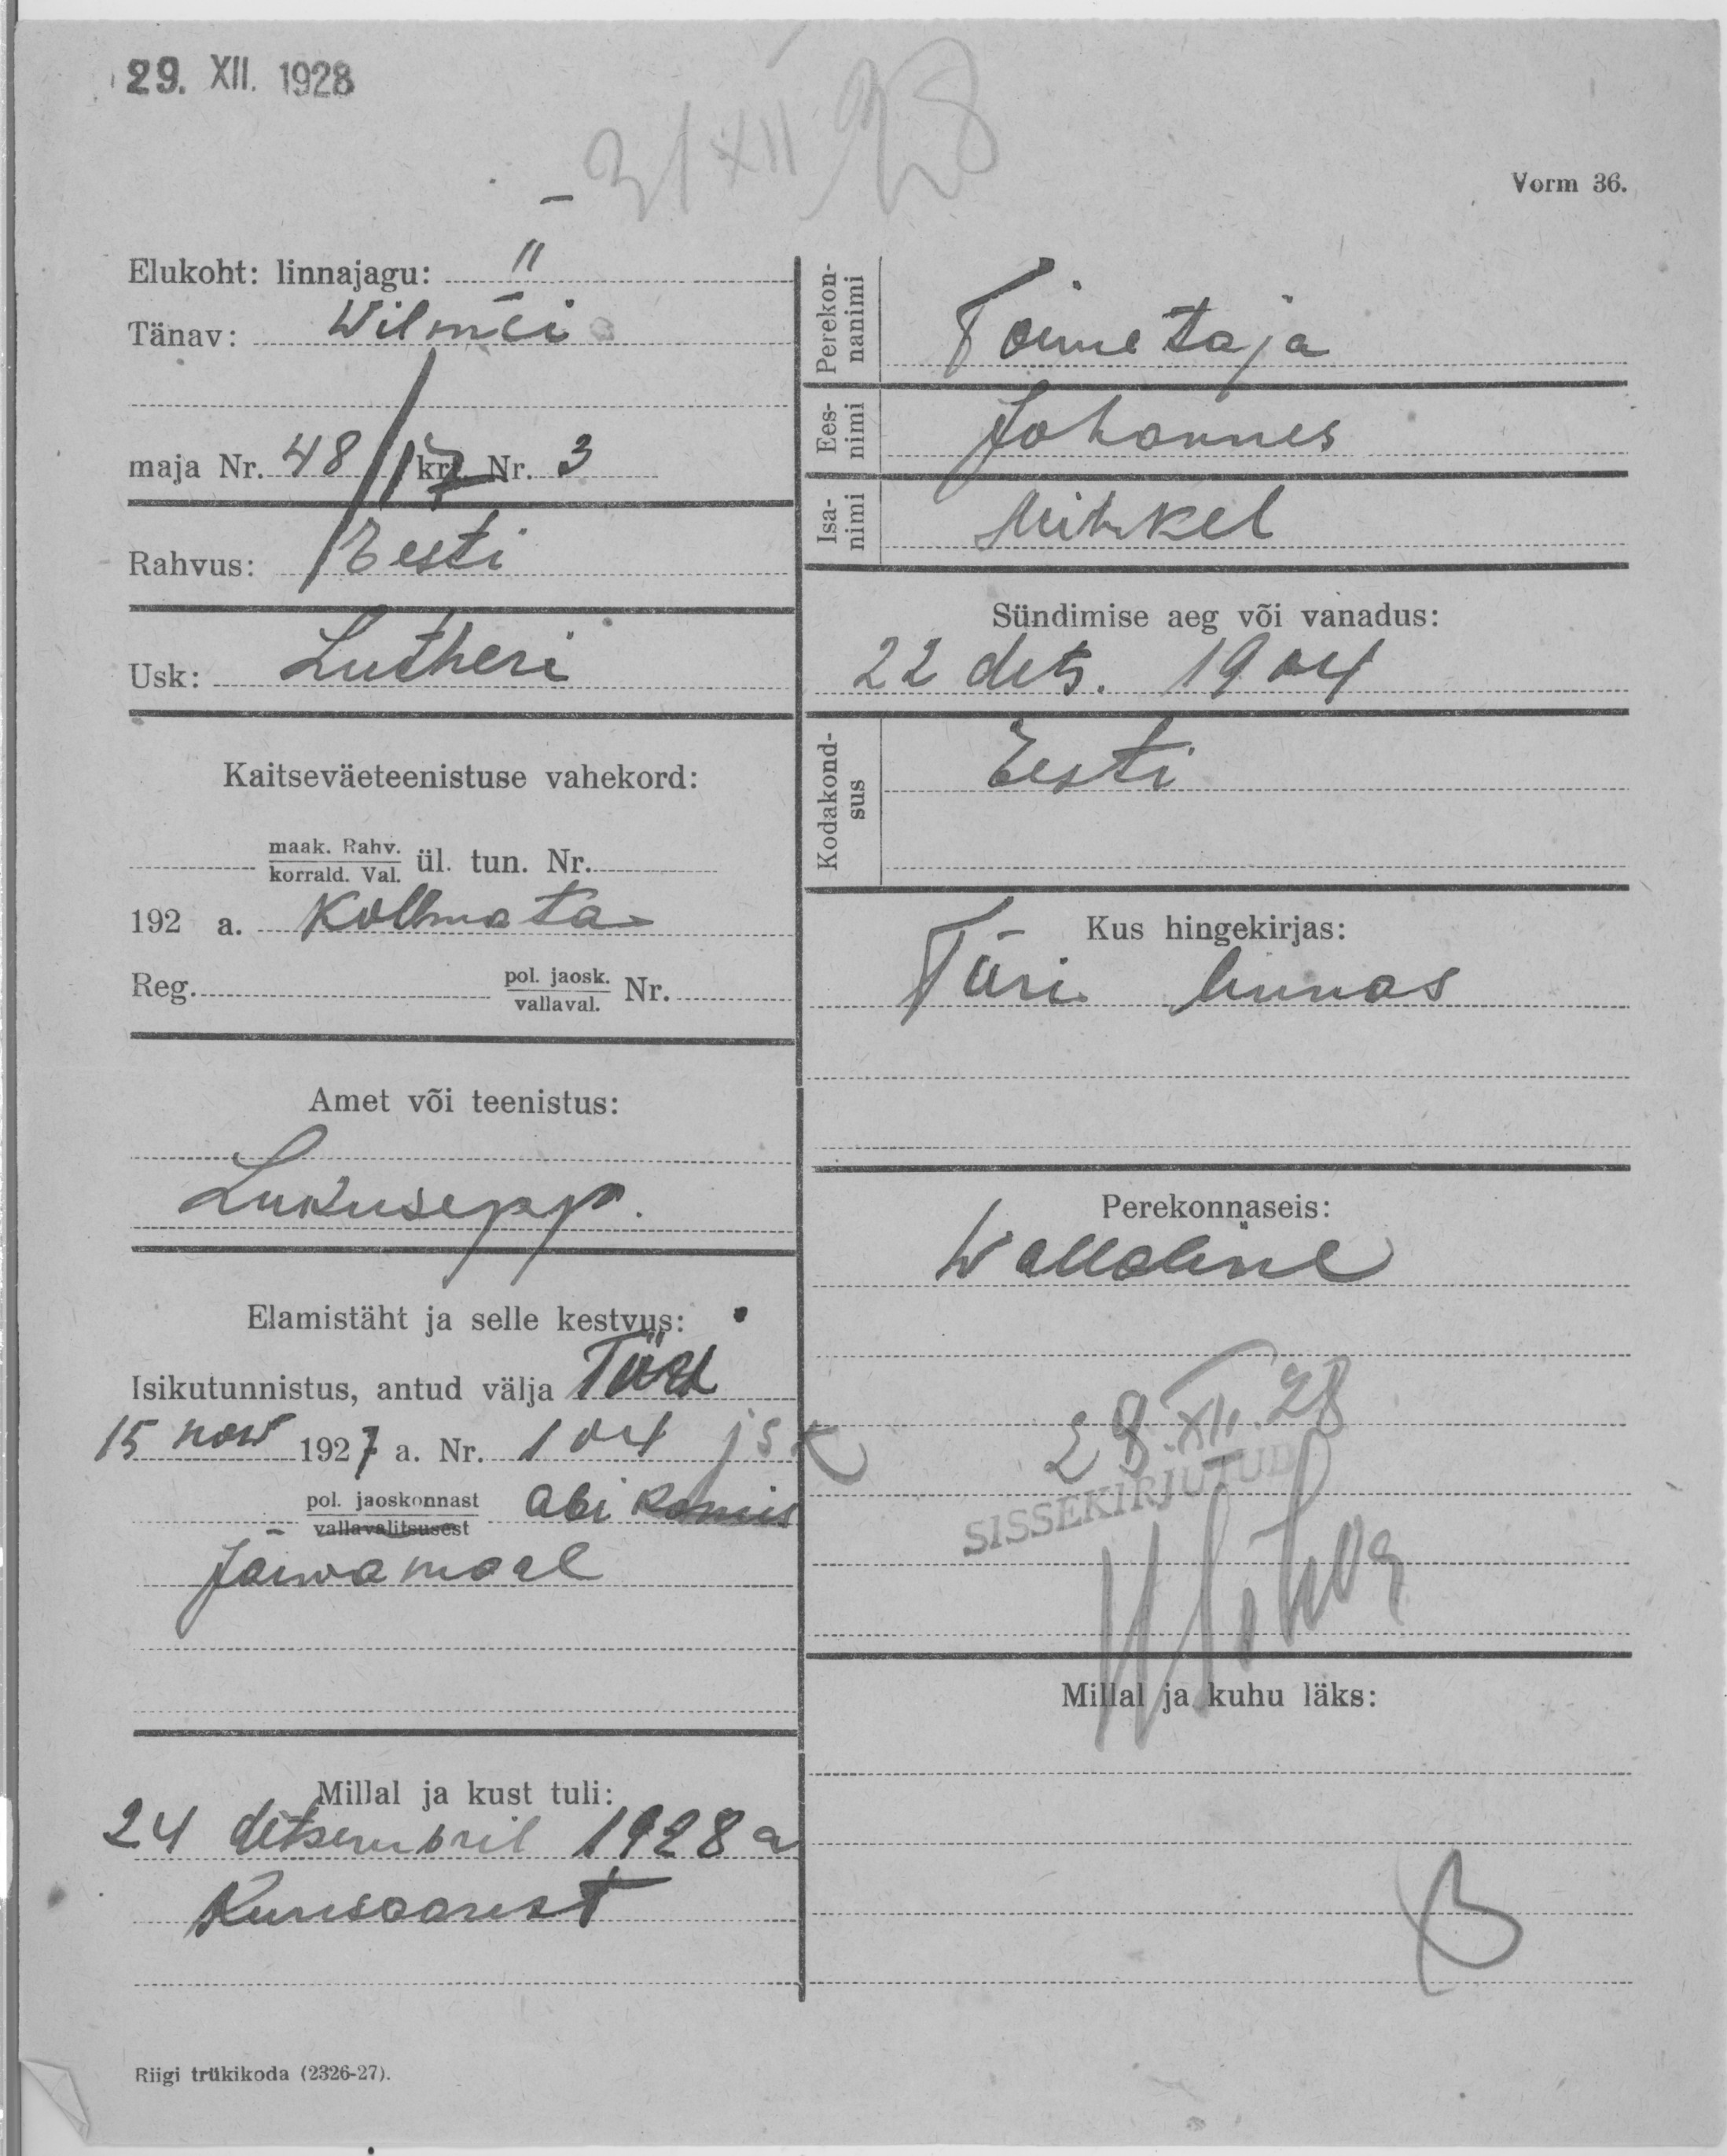 29. XII. 1928
31 XII 28
Vorm 36.
Elukoht: linnajagu: II
Tänav: Wilmsi
maja Nr. 48/17 krt. Nr. 3
Rahvus: Eesti
Usk: Lutheri
Kaitseväeteenistuse vahekord:
maak. Rahv. ül. tun. Nr.
korrald. Val.
192 a. Kollmata
Reg. pol. jaosk. Nr.
vallaval.
Amet või teenistus:
Lukusepp.
Elamistäht ja selle kestvus:
Isikutunnistus, antud välja Türi
15 now 1927 a. Nr. 104 jsk
pol. jaoskonnast abi komis
vallavalitsusest
Järwamaal
Millal ja kust tuli:
24 detsembril 1928 a
Kuresaarest
Perekonnanimi Toimetaja
Eesnimi Johannes
Isanimi Mihkel
Sündimise aeg või vanadus:
22 dets. 1904
Kodakondsus Eesti
Kus hingekirjas:
Türi linnas
Perekonnaseis:
Wallaline
28.XII.28
SISSEKIRJUTUD
Millal ja kuhu läks:
Riigi trükikoda (2326-27).